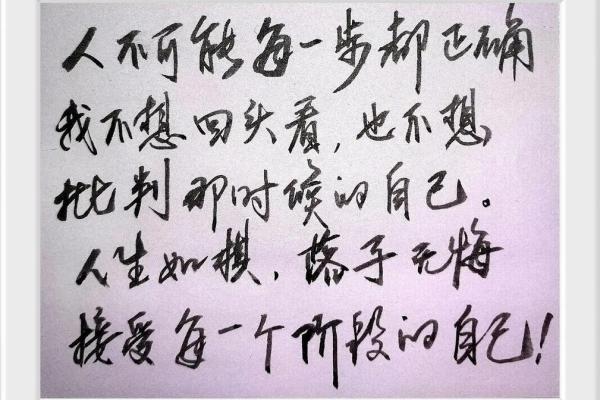 人不可能每一步都正确
我不想回头看,也不想
批判那时候的自己。
人生如棋,落子无悔
接受每一个阶段的自己!